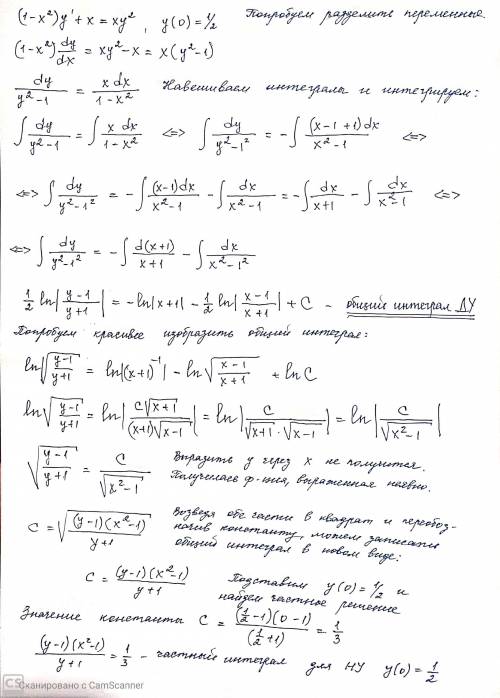 (1-x²)y' + x = xy², y(0) = 1/2 Попробуем разделить переменные
(1-x²) dy/dx = xy² - x = x(y²-1)
dy/(y²-1) = x dx/(1-x²) Навешиваем интегралы и интегрируем:
∫ dy/(y²-1) = ∫ x dx/(1-x²) <=> ∫ dy/(y²-1²) = -∫ (x-1+1)dx/(x²-1) <=>
<=> ∫ dy/(y²-1²) = -∫ (x-1)dx/(x²-1) - ∫ dx/(x²-1) = -∫ dx/(x+1) - ∫ dx/(x²-1) <=>
<=> ∫ dy/(y²-1²) = -∫ d(x+1)/(x+1) - ∫ dx/(x²-1²)
1/2 ln|(y-1)/(y+1)| = -ln|x+1| - 1/2 ln|(x-1)/(x+1)| + C - общий интеграл ДУ
Попробуем красивее изобразить общий интеграл:
ln|√((y-1)/(y+1))| = ln|(x+1)⁻¹| - ln√((x-1)/(x+1)) + ln C
ln√((y-1)/(y+1)) = ln|C√(x+1)/((x+1)√(x-1))| = ln|C/(√(x+1)·√(x-1))| = ln|C/√(x²-1)|
√((y-1)/(y+1)) = C/√(x²-1) Выразить y через x не получится.
Получилась ф-ция, выраженная неявно.
C = √((y-1)(x²-1)/(y+1)) Возведя обе части в квадрат и переобоз-
начив константу, можем записать
общий интеграл в новом виде:
C = (y-1)(x²-1)/(y+1) Подставим y(0) = 1/2 и
найдем частное решение
Значение константы C = (1/2-1)(0-1)/(1/2+1) = 1/3
(y-1)(x²-1)/(y+1) = 1/3 - частный интеграл для НУ y(0) = 1/2
CS Сканировано с CamScanner